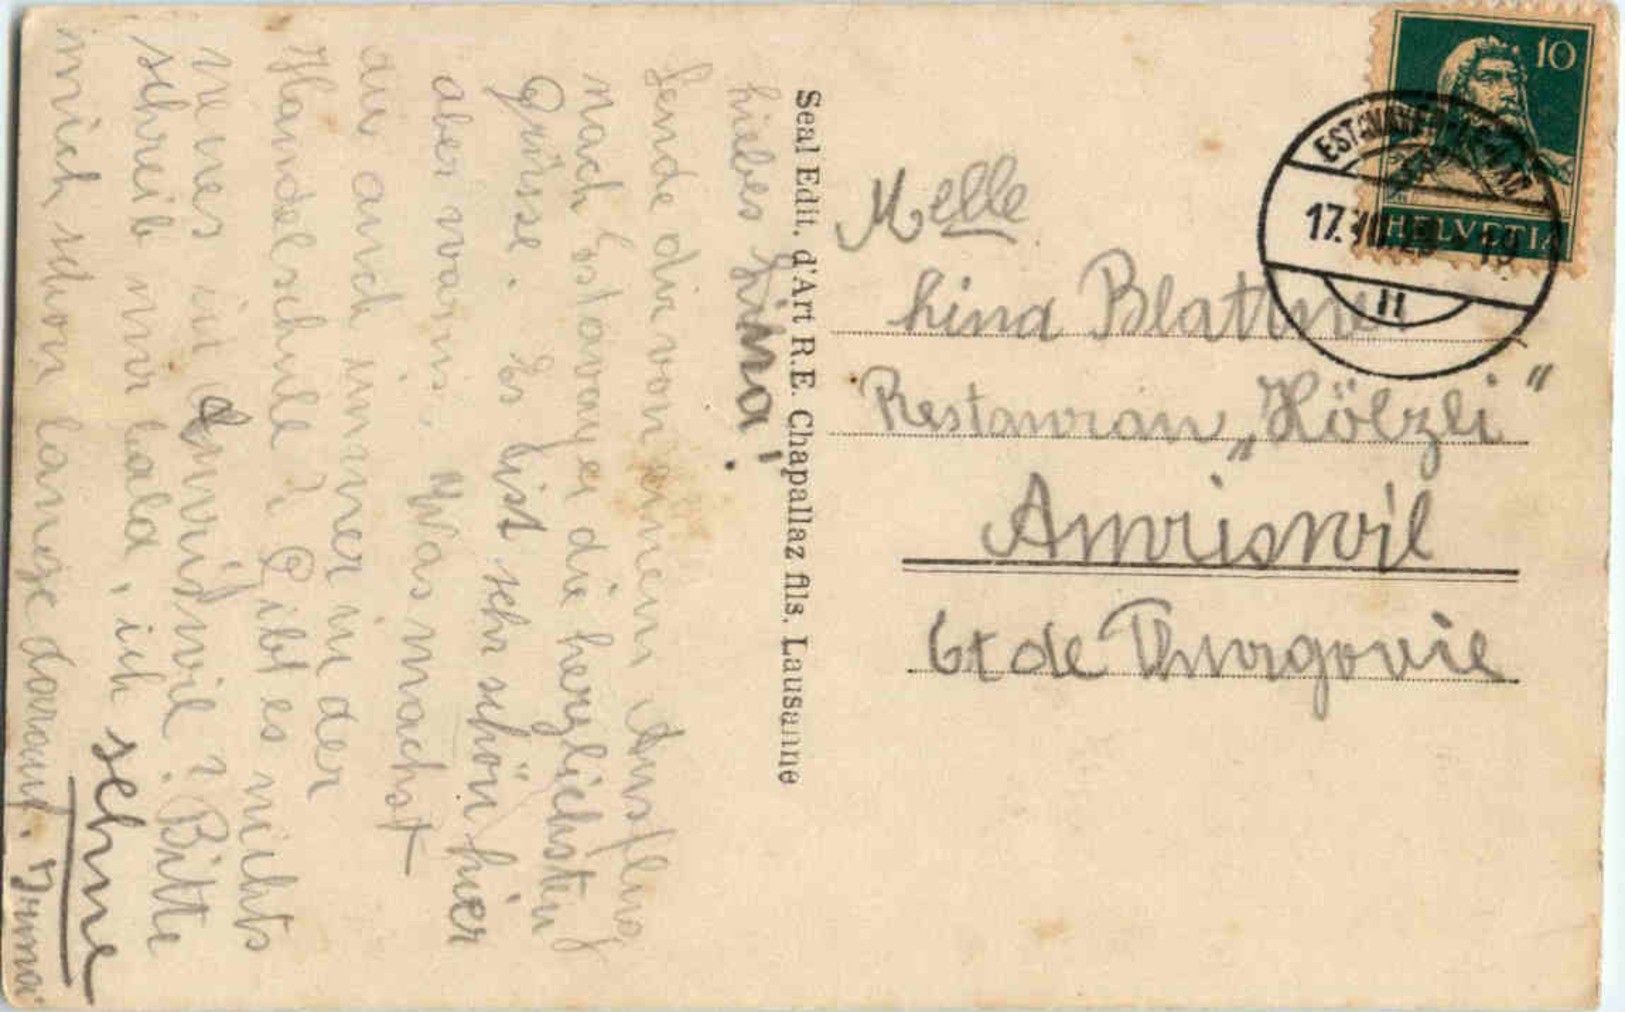 Liebes Lina!
Sende dir von einem Ausflug
nach Estavayer die herzlichsten
Grüsse. Es ist sehr schön hier
aber warm. Was machst
du auch immer in der
Handelschule? Gibt es nichts
neues in Amriswil? Bitte
schreib mir bald, ich sehne
mich schon lange darauf. Irma
Seal Edit. d'Art R.E. Chapallaz fils. Lausanne
10
HELVETIA
17. VII. 19
Melle
Lina Blattner
Restauran „Hölzli"
Amriswil
Ct de Thurgovie